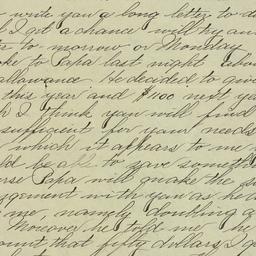 write you a long letter to d
I get a chance will try an
to morrow or Monday
ke to Papa last night abou
allowance. He decided to give
this year and $400 next ye
h I think you will find
sufficient for your needs
which it appears to me
ld be able to save someth
rse Papa will make the
gement with you as he d
me, namely doubling a
Moreover he told me he
ount that fifty dollars I g